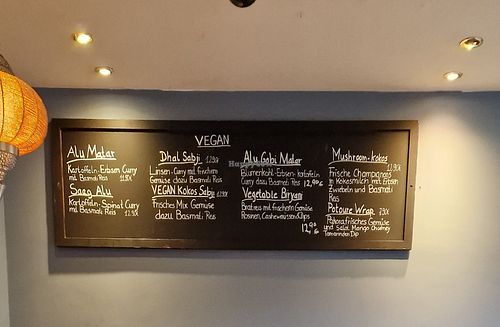 VEGAN
Alu Matar
Kartoffeln-Erbsen Curry
mit Basmati Reis 11.90€
Saag Alu
Kartoffeln-Spinat Curry
mit Basmati Reis 12.90€
Dhal Sabji 12.90€
Linsen-Curry mit frischem
Gemüse dazu Basmati Reis
VEGAN Kokos Sabji 12.90€
Frisches Mix Gemüse
dazu Basmati Reis
Alu Gobi Matar
Blumenkohl-Erbsen-Kartoffeln
Curry dazu Basmati Reis 12,90€
Vegetable Biryani
Bratreis mit frischem Gemüse
Rosinen, Cashewnüssen
12,90€
Mushroom-Kokos
11.90€
Frische Champignons
in Kokosmilch mit Erbsen
Zwiebeln und Basmati
Reis
Pakoura Wrap 7.90€
Pakora, frisches Gemüse
und Salat Mango Chutney
Tamarinden Dip